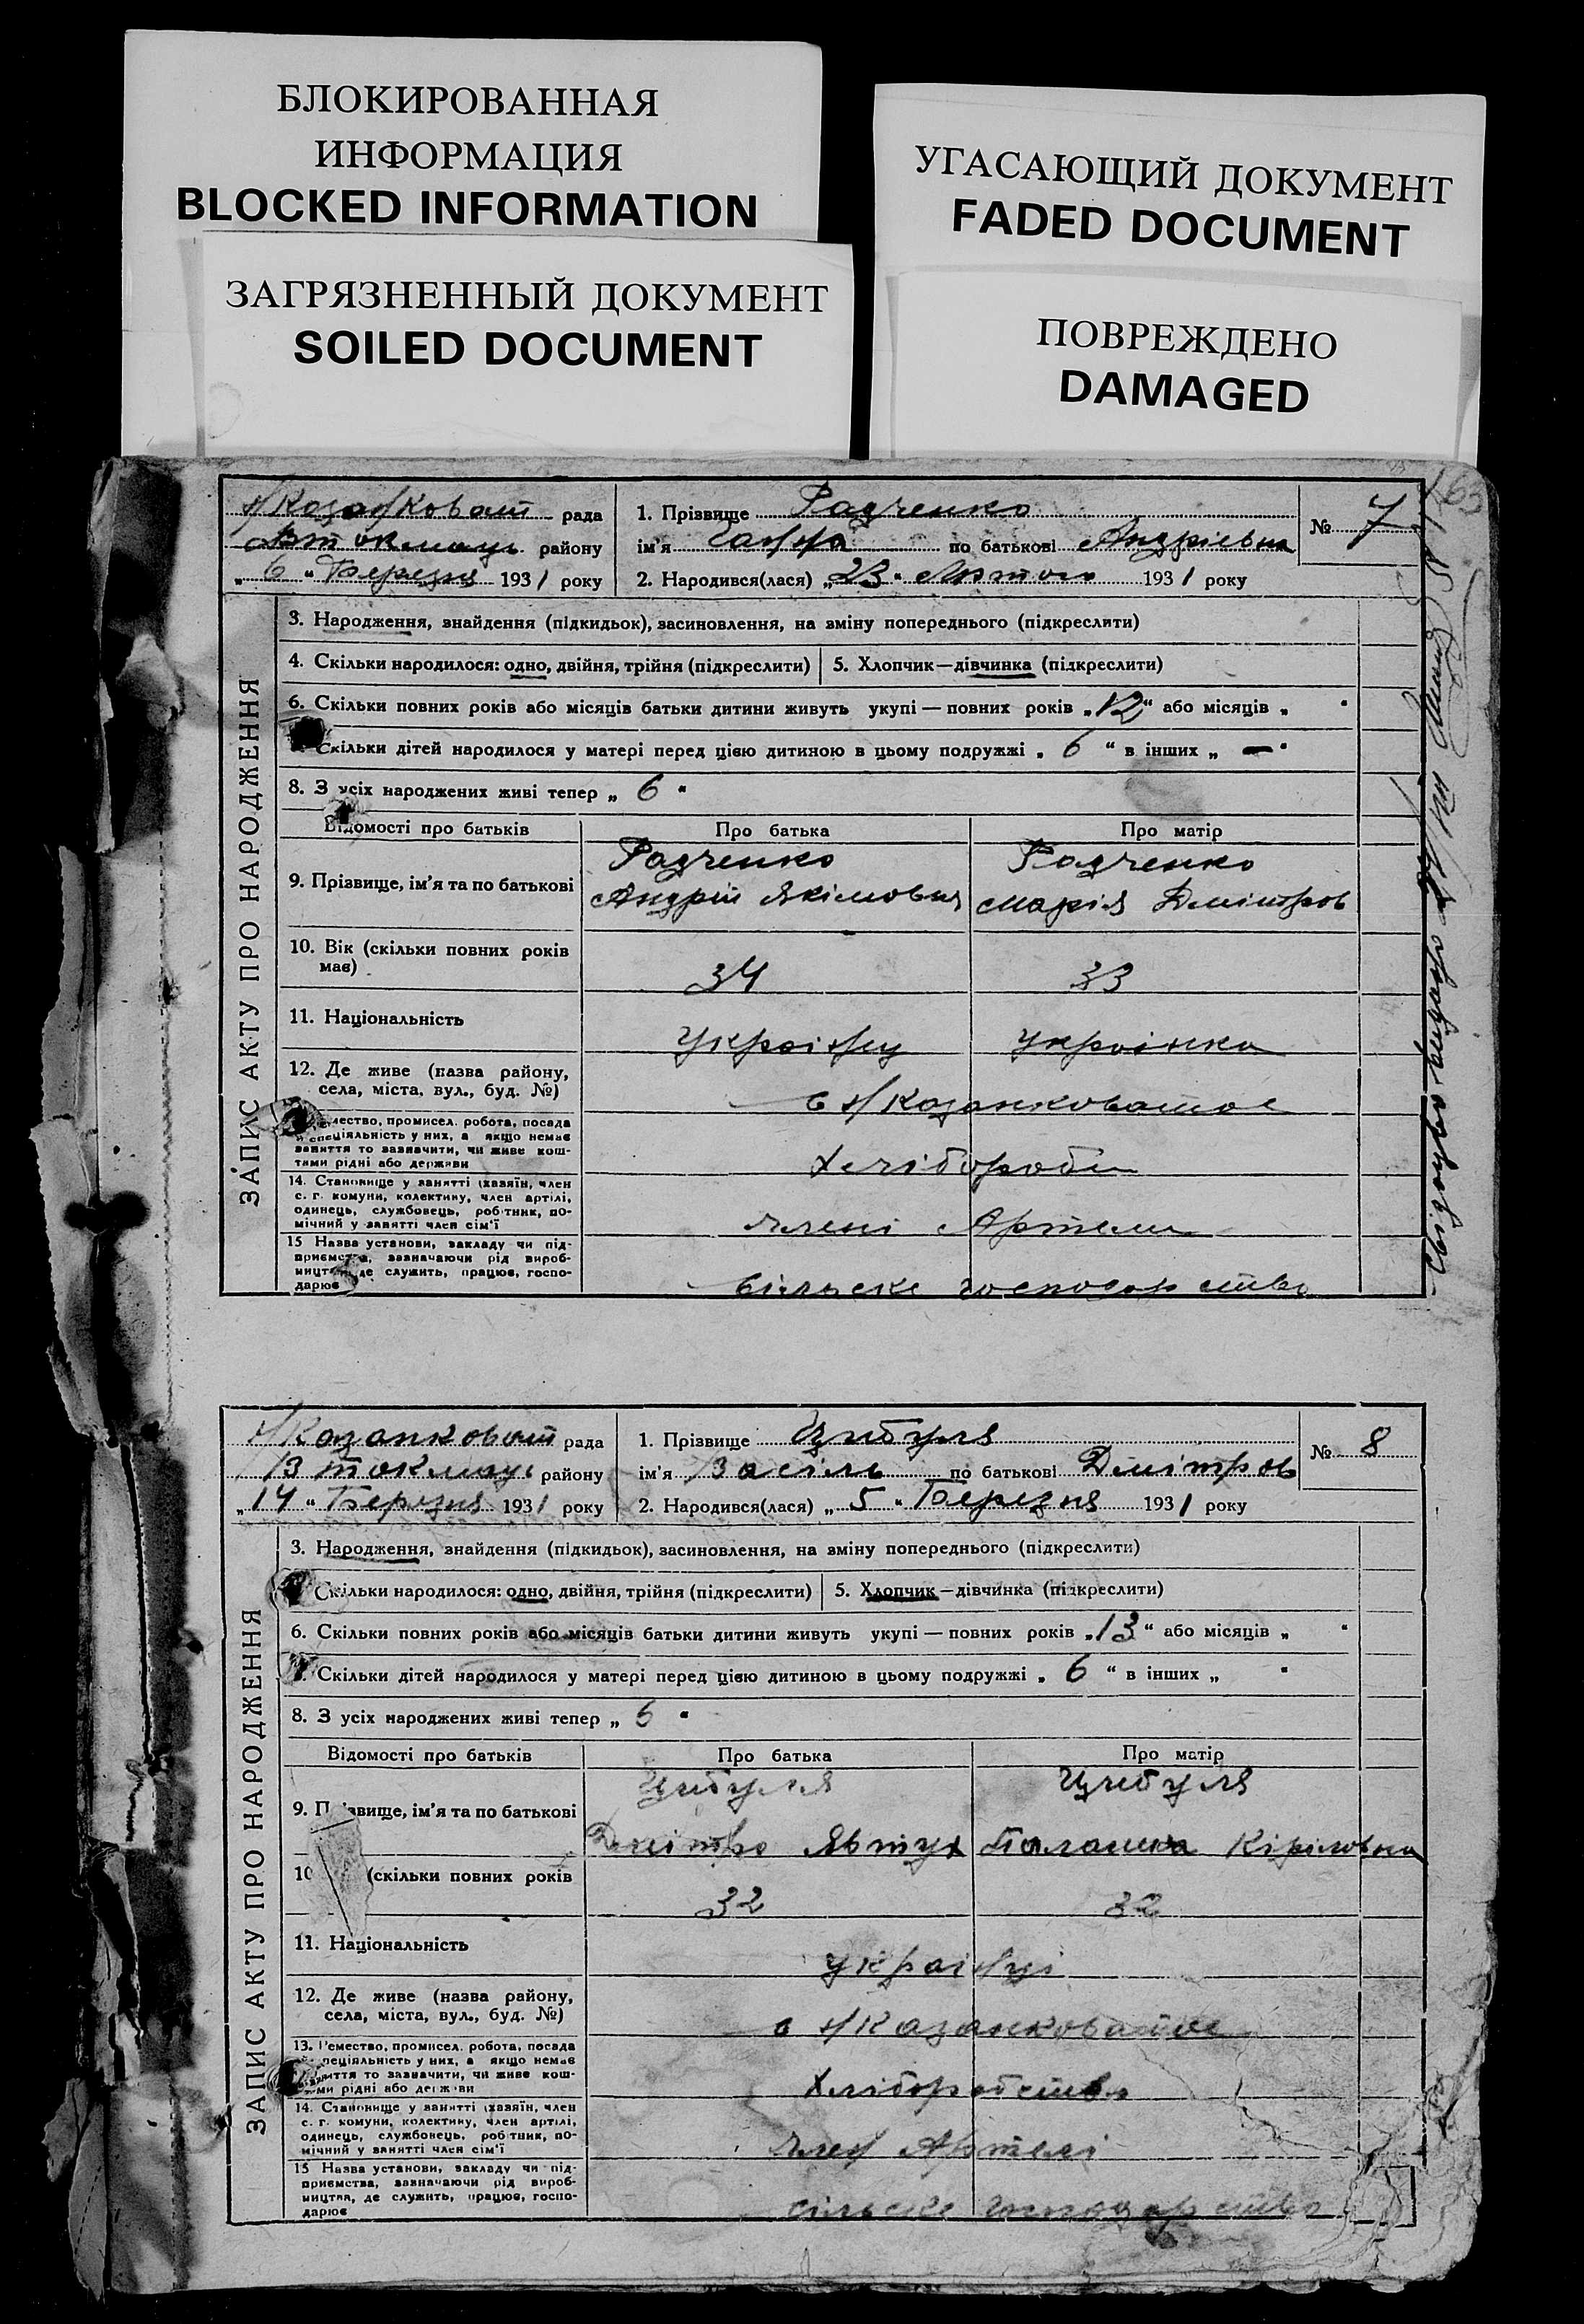 БЛОКИРОВАННАЯ
ИНФОРМАЦИЯ
BLOCKED INFORMATION
ЗАГРЯЗНЕННЫЙ ДОКУМЕНТ
SOILED DOCUMENT
УГАСАЮЩИЙ ДОКУМЕНТ
FADED DOCUMENT
ПОВРЕЖДЕНО
DAMAGED
ЗАПИС АКТУ ПРО НАРОДЖЕННЯ
Н/Казанковат рада
Вт окмаць району
„ 6 " Березня 1931 року
1. Прізвище Радченко
ім'я Ганна по батькові Андрієвна
2. Народився(лася) „ 23 " Лютого 1931 року
№ 7
3. Народження, знайдення (підкидьок), засиновлення, на зміну попереднього (підкреслити)
4. Скільки народилося: одно, двійня, трійня (підкреслити) 5. Хлопчик—дівчинка (підкреслити)
6. Скільки повних років або місяців батьки дитини живуть укупі — повних років „ 12 " або місяців „ "
Скільки дітей народилося у матері перед цією дитиною в цьому подружжі „ 6 " в інших „ — "
8. З усіх народжених живі тепер „ 6 "
Відомості про батьків Про батька Про матір
9. Прізвище, ім'я та по батькові
Радченко Радченко
Андрій Якімович Марія Дмітров
10. Вік (скільки повних років
має)
34 33
11. Національність
Українц Українка
12. Де живе (назва району,
села, міста, вул., буд. №)
с Н/Казанковатое
мество, промисел. робота, посада
й спеціяльність у них, а якщо немає
заняття то зазначити, чи живе кош-
тами рідні або держави
Хлібороби
14. Становище у занятті (хазяїн, член
с. г. комуни, колективу, член артілі,
одинець, службовець, робітник, по-
мічний у занятті член сім'ї
Члені Артели
15 Назва установи, закладу чи під-
приємства, зазначаючи рід вироб-
ництва, де служить, працює, госпо-
дарює
Сільске господарство
ЗАПИС АКТУ ПРО НАРОДЖЕННЯ
Н/Казанковат рада
В токмаць району
„ 14 " Березня 1931 року
1. Прізвище Цибуля
ім'я Васіль по батькові Дмітров
2. Народився(лася) „ 5 " Березня 1931 року
№ 8
3. Народження, знайдення (підкидьок), засиновлення, на зміну попереднього (підкреслити)
Скільки народилося: одно, двійня, трійня (підкреслити) 5. Хлопчик—дівчинка (підкреслити)
6. Скільки повних років або місяців батьки дитини живуть укупі — повних років „ 13 " або місяців „ "
Скільки дітей народилося у матері перед цією дитиною в цьому подружжі „ 6 " в інших „ "
8. З усіх народжених живі тепер „ 5 "
Відомості про батьків Про батька Про матір
9. Прізвище, ім'я та по батькові
Цибуля Цибуля
Дмітро Явтух Палашка Кіріловна
10 (скільки повних років
32 32
11. Національність
Українці
12. Де живе (назва району,
села, міста, вул., буд. №)
с Н/Казанковатое
13. Ремество, промисел. робота, посада
спеціяльність у них, а якщо немає
заняття то зазначити, чи живе кош-
тами рідні або держави
Хліборобство
14. Становище у занятті (хазяїн, член
с. г. комуни, колективу, член артілі,
одинець, службовець, робітник, по-
мічний у занятті член сім'ї
член Артелі
15 Назва установи, закладу чи під-
приємства, зазначаючи рід вироб-
ництва, де служить, працює, госпо-
дарює
сільске господарство